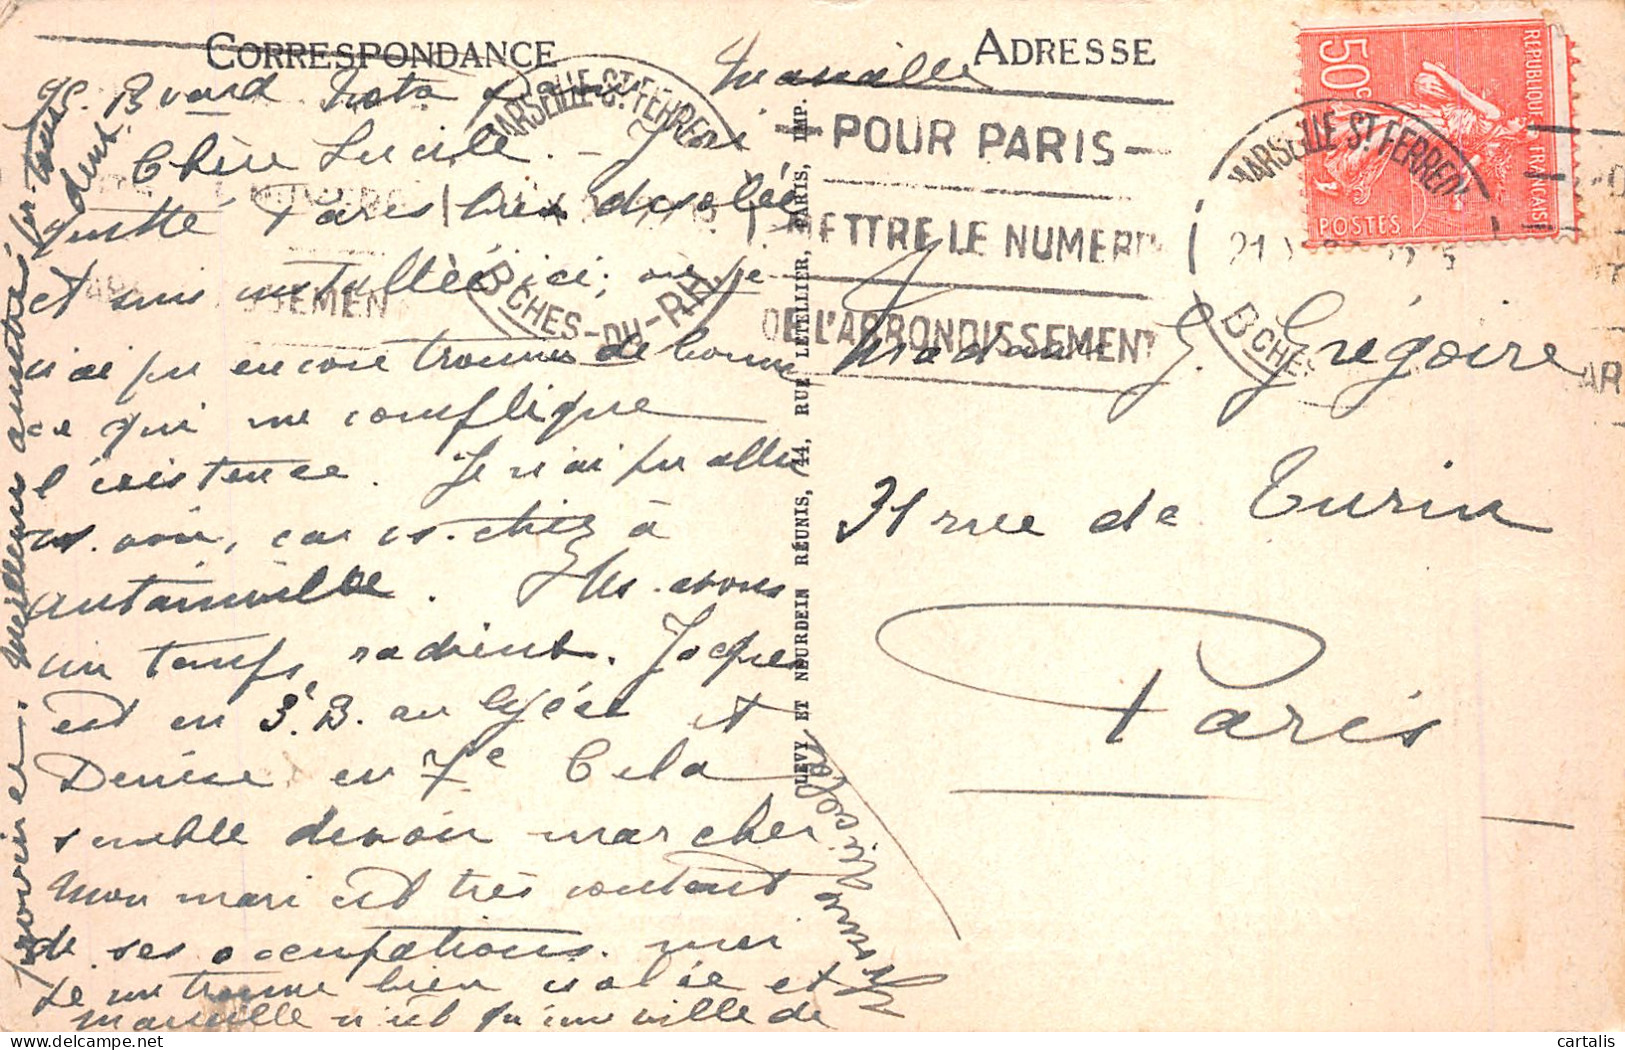 CORRESPONDANCE
ADRESSE
Marseille
Chère Lucile. - J'ai
quitté Paris bien désolée
et suis installée ici; où je
n'ai pu encore trouver de bonne
ce qui me complique
l'existence. Je n'ai pu aller
vs. voir, car vs. étiez à
Antainville. Ns. avons
un temps radieux. Jacques
est en 3e B. au lycée et
Denise en 7e Cela
semble devoir marcher
Mon mari est très content
de ses occupations. moi
je me trouve bien isolée et
Marseille n'est qu'une ville de
province. Meilleurs amitiés pr. tous
LEVY ET NEURDEIN RÉUNIS, 44, RUE LETELLIER, PARIS, IMP.
MARSEILLE ST. FERREOL
BCHES-DU-RH.
POUR PARIS
METTRE LE NUMERO
DE L'ARRONDISSEMENT
MARSEILLE ST. FERREOL
BCHES
50c
REPUBLIQUE FRANÇAISE
POSTES
Madame G. Grégoire
31 rue de Turin
Paris
cartalis | Delcampe.net